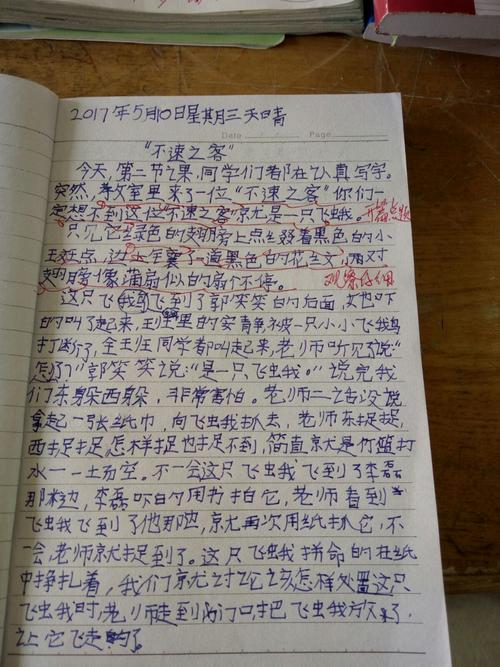 2017年5月10日星期三天晴
Date Page
"不速之客"
今天,第二节课,同学们都在认真写字。
突然,教室里来了一位"不速之客"你们一
定想不到这位"不速之客"就是一只飞蛾。开篇点题
只见它绿色的翅膀上点缀着黑色的小
斑点,边上镶了一道黑色的花纹,两对
翅膀像蒲扇似的扇个不停。观察仔细
这只飞蛾飞到了郭笑笑的后面,她吓
的叫了起来,班里的安静被一只小小飞蛾
打断了,全班同学都叫起来,老师听见了说:"
怎了?"郭笑笑说:"是一只飞蛾。"说完我
们东躲西躲,非常害怕。老师二话没说
拿起一张纸巾,向飞蛾抓去,老师东捉捉,
西捉捉怎样捉也捉不到,简直就是竹篮打
水一一场空。不一会这只飞蛾飞到了李磊
那边,李磊吓的用书拍它,老师看到
飞蛾飞到了他那边,就再次用纸抓它,不
一会,老师就捉到了。这只飞蛾拼命的在纸
中挣扎着,我们就讨论该怎样处置这只
飞蛾时,老师走到门口把飞蛾放了,
让它飞走了。